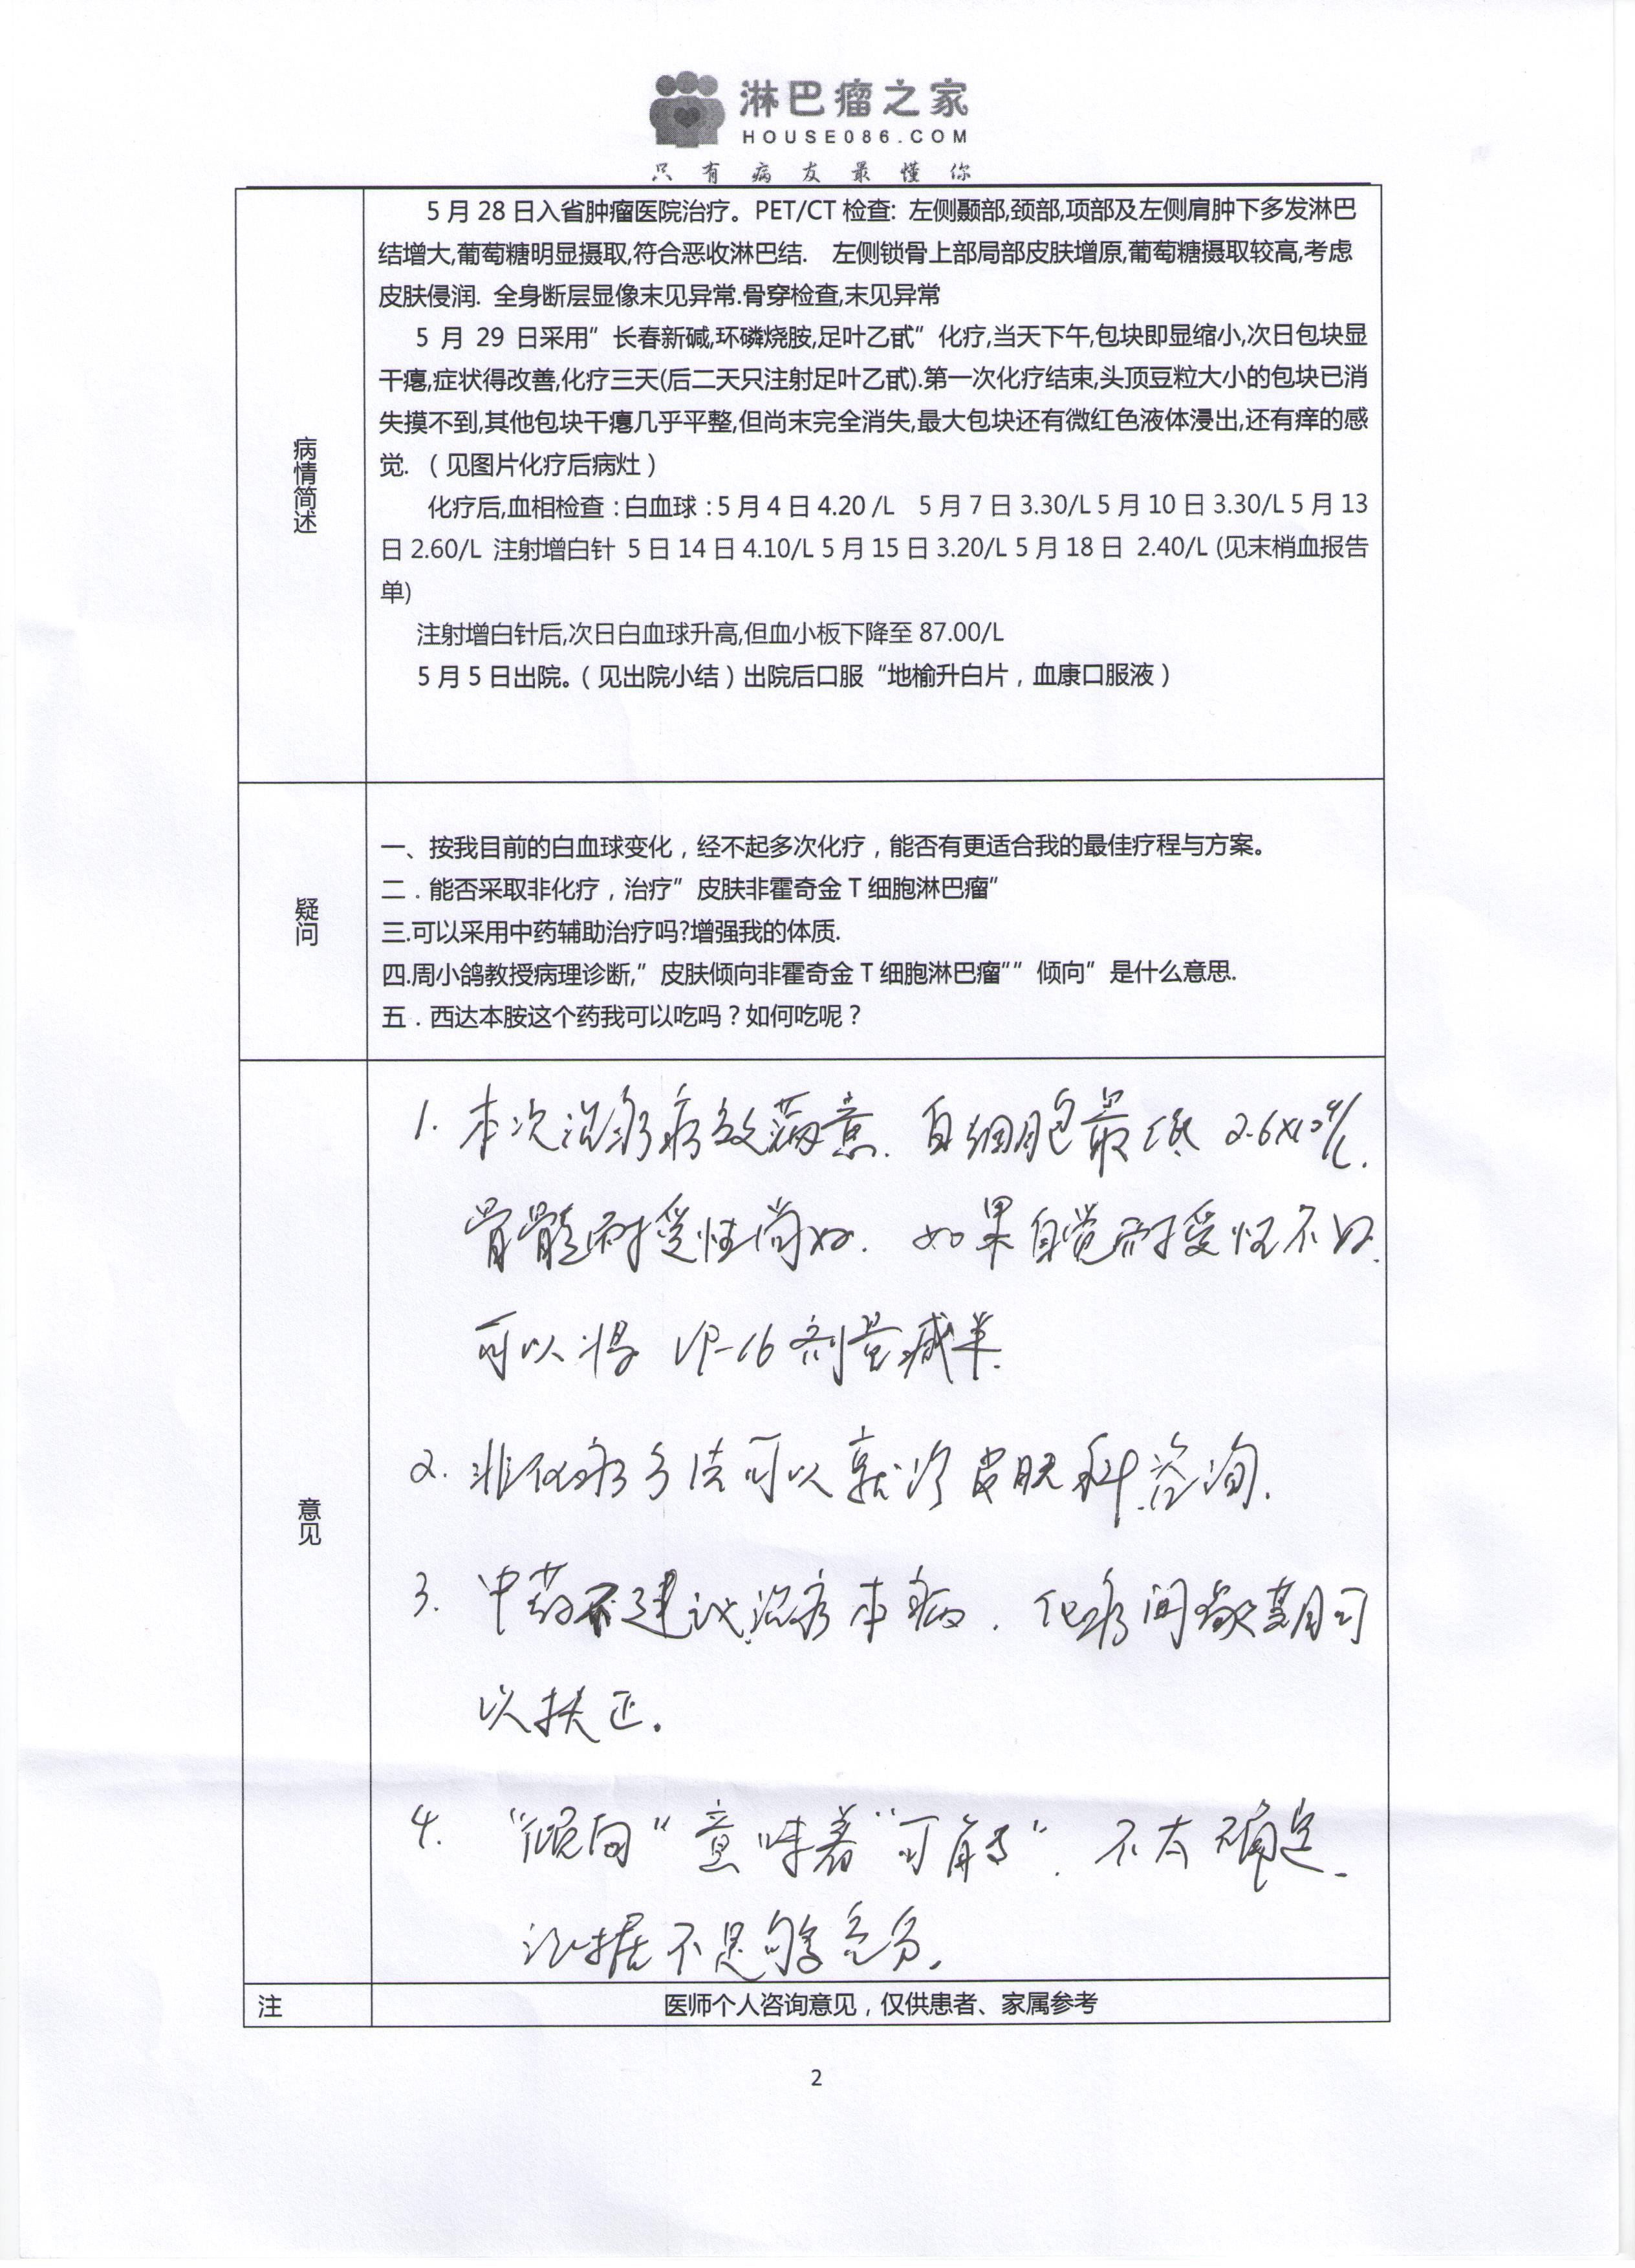 淋巴瘤之家
HOUSE086.COM
只有病友最懂你
病情简述
5月28日入省肿瘤医院治疗。PET/CT检查: 左侧颞部,颈部,项部及左侧肩肿下多发淋巴
结增大,葡萄糖明显摄取,符合恶收淋巴结. 左侧锁骨上部局部皮肤增原,葡萄糖摄取较高,考虑
皮肤侵润. 全身断层显像末见异常.骨穿检查,末见异常
5月29日采用”长春新碱,环磷烧胺,足叶乙甙”化疗,当天下午,包块即显缩小,次日包块显
干瘪,症状得改善,化疗三天(后二天只注射足叶乙甙).第一次化疗结束,头顶豆粒大小的包块已消
失摸不到,其他包块干瘪几乎平整,但尚末完全消失,最大包块还有微红色液体浸出,还有痒的感
觉.（见图片化疗后病灶）
化疗后,血相检查：白血球：5月4日4.20 /L 5月7日3.30/L 5月10日3.30/L 5月13
日2.60/L 注射增白针 5日14日4.10/L 5月15日3.20/L 5月18日 2.40/L (见末梢血报告
单)
注射增白针后,次日白血球升高,但血小板下降至87.00/L
5月5日出院。（见出院小结）出院后口服“地榆升白片，血康口服液）
疑问
一、按我目前的白血球变化，经不起多次化疗，能否有更适合我的最佳疗程与方案。
二．能否采取非化疗，治疗”皮肤非霍奇金T细胞淋巴瘤”
三.可以采用中药辅助治疗吗?增强我的体质.
四.周小鸽教授病理诊断,”皮肤倾向非霍奇金T细胞淋巴瘤””倾向”是什么意思.
五．西达本胺这个药我可以吃吗？如何吃呢？
意见
1. 本次治疗疗效满意. 白细胞最低 2.6×10⁹/L.
骨髓耐受性尚好. 如果自觉耐受性不好.
可以将 VP-16 剂量减半.
2. 非化疗方法可以就诊皮肤科咨询.
3. 中药不建议治疗本病. 化疗间歇期可
以扶正.
4. “倾向”意味着“可能”. 不太确定.
证据不足够充分.
注
医师个人咨询意见，仅供患者、家属参考
2